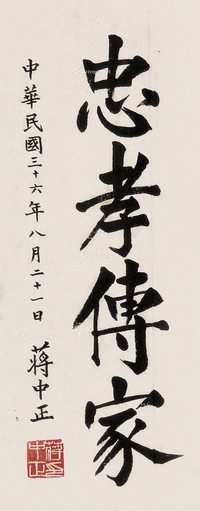 忠孝傳家
中華民國三十六年八月二十一日
蔣中正
蔣中正印